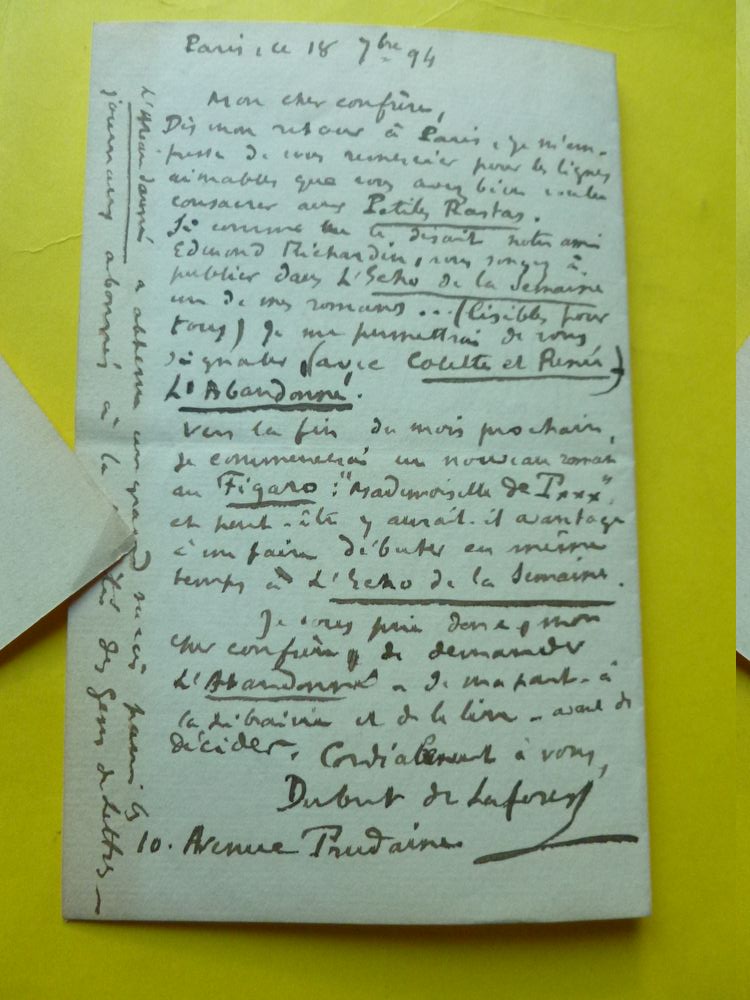 Paris, ce 18 7bre 94
Mon cher confrère,
Dès mon retour à Paris, je m'em-
presse de vous remercier pour les lignes
aimables que vous avez bien voulu
consacrer aux Petits Rastas.
Si comme me le disait notre ami
Edmond Richardin, vous songez à
publier dans L'Echo de la Semaine
un de mes romans... (lisibles pour
tous) je me permettrai de vous
signaler (avec Colette et Renée)
L'Abandonné.
Vers la fin du mois prochain,
je commencerai un nouveau roman
au Figaro : "Mademoiselle de Txxx",
et peut-être y aurait-il avantage
à me faire débuter en même
temps à L'Echo de la Semaine.
Je vous prie donc, mon
cher confrère, de demander
L'Abandonné - de ma part - à
la librairie et de le lire - avant de
décider. Cordialement à vous,
Dubut de Laforest
10. Avenue Trudaine.
L'Abandonné a obtenu un grand succès parmi les
journaux abonnés à la des Gens de Lettres -